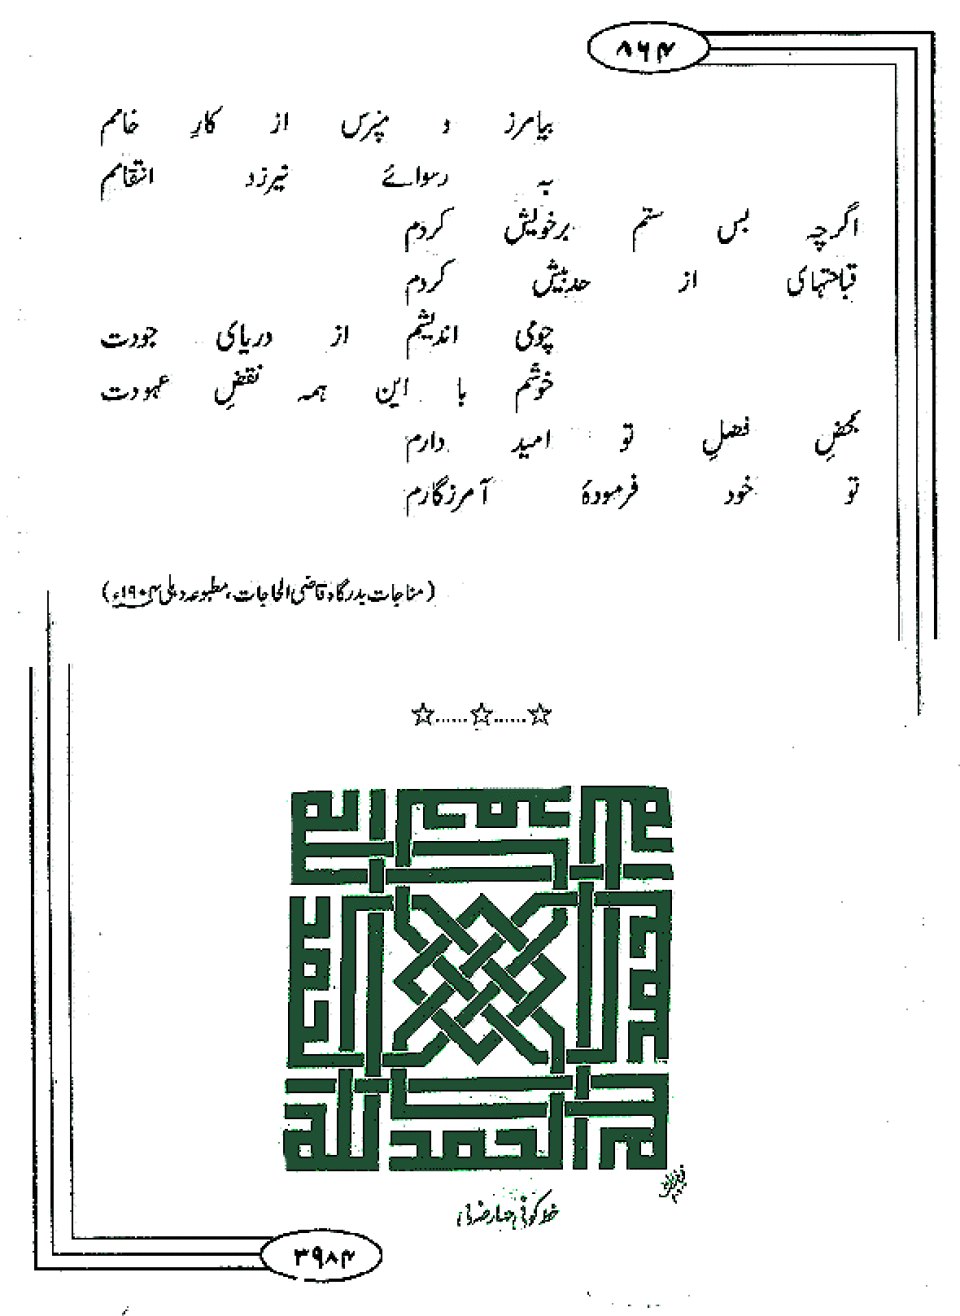 ۸۶۴
بیامرز و مپرس از کارِ خامم
بہ رسوائے نیرزد انتقامم
اگرچہ بس ستم برخویش کردم
قباحتہای از حد بیش کردم
چومی اندیشم از دریای جودت
خوشم با این ہمہ نقضِ عہودت
بمحضِ فضلِ تو امید دارم
تو خود فرمودۂ آمرزگارم
(مناجات بدرگاہ قاضی الحاجات، مطبوعہ دہلی ۱۹۰۴ء)
☆......☆......☆
الحمد للہ
۳۹۸۴